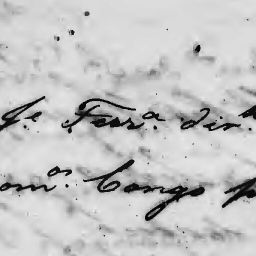 J.e Ferr.a dir.
om.os Congo p